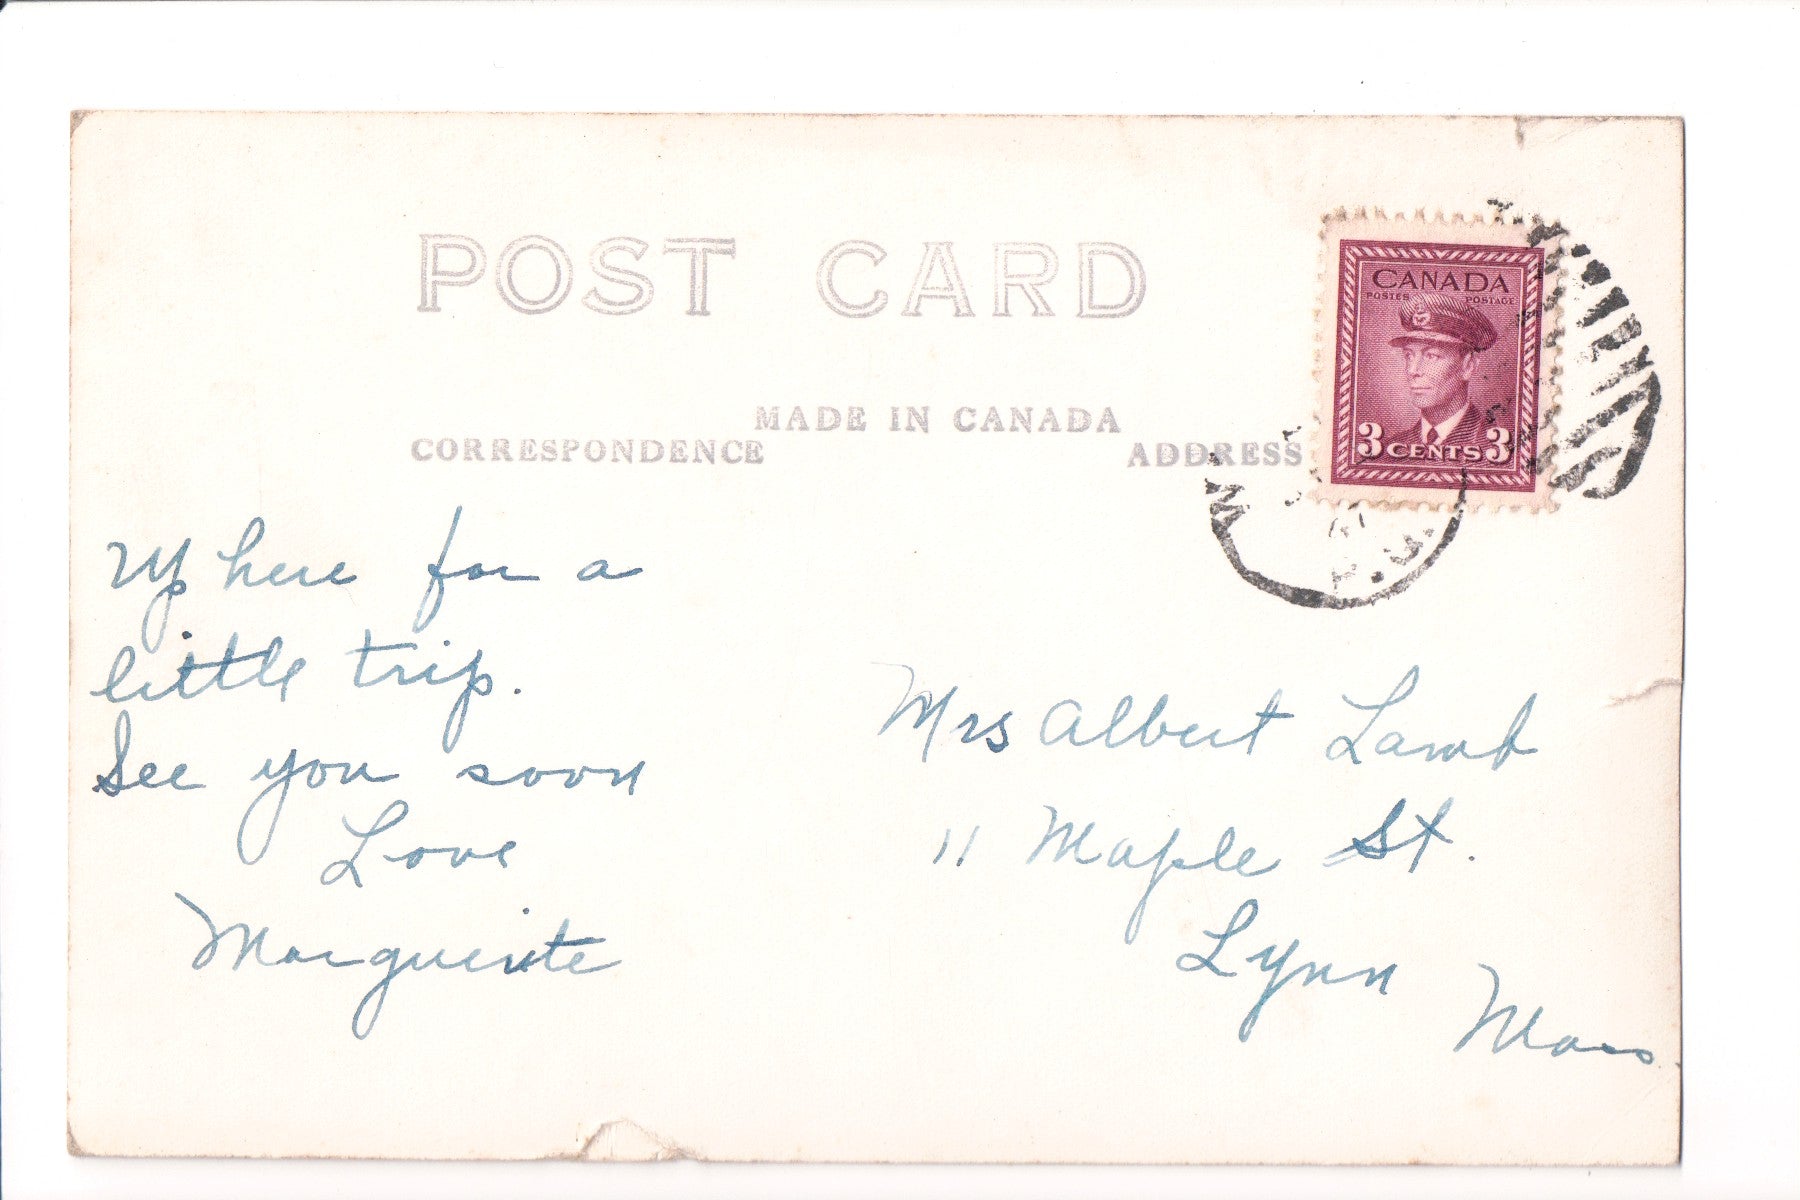 POST CARD
MADE IN CANADA
CORRESPONDENCE
ADDRESS
CANADA
POSTES POSTAGE
3 CENTS 3
Up here for a
little trip.
See you soon
Love
Marguerite
Mrs Albert Lamb
11 Maple St.
Lynn
Mass